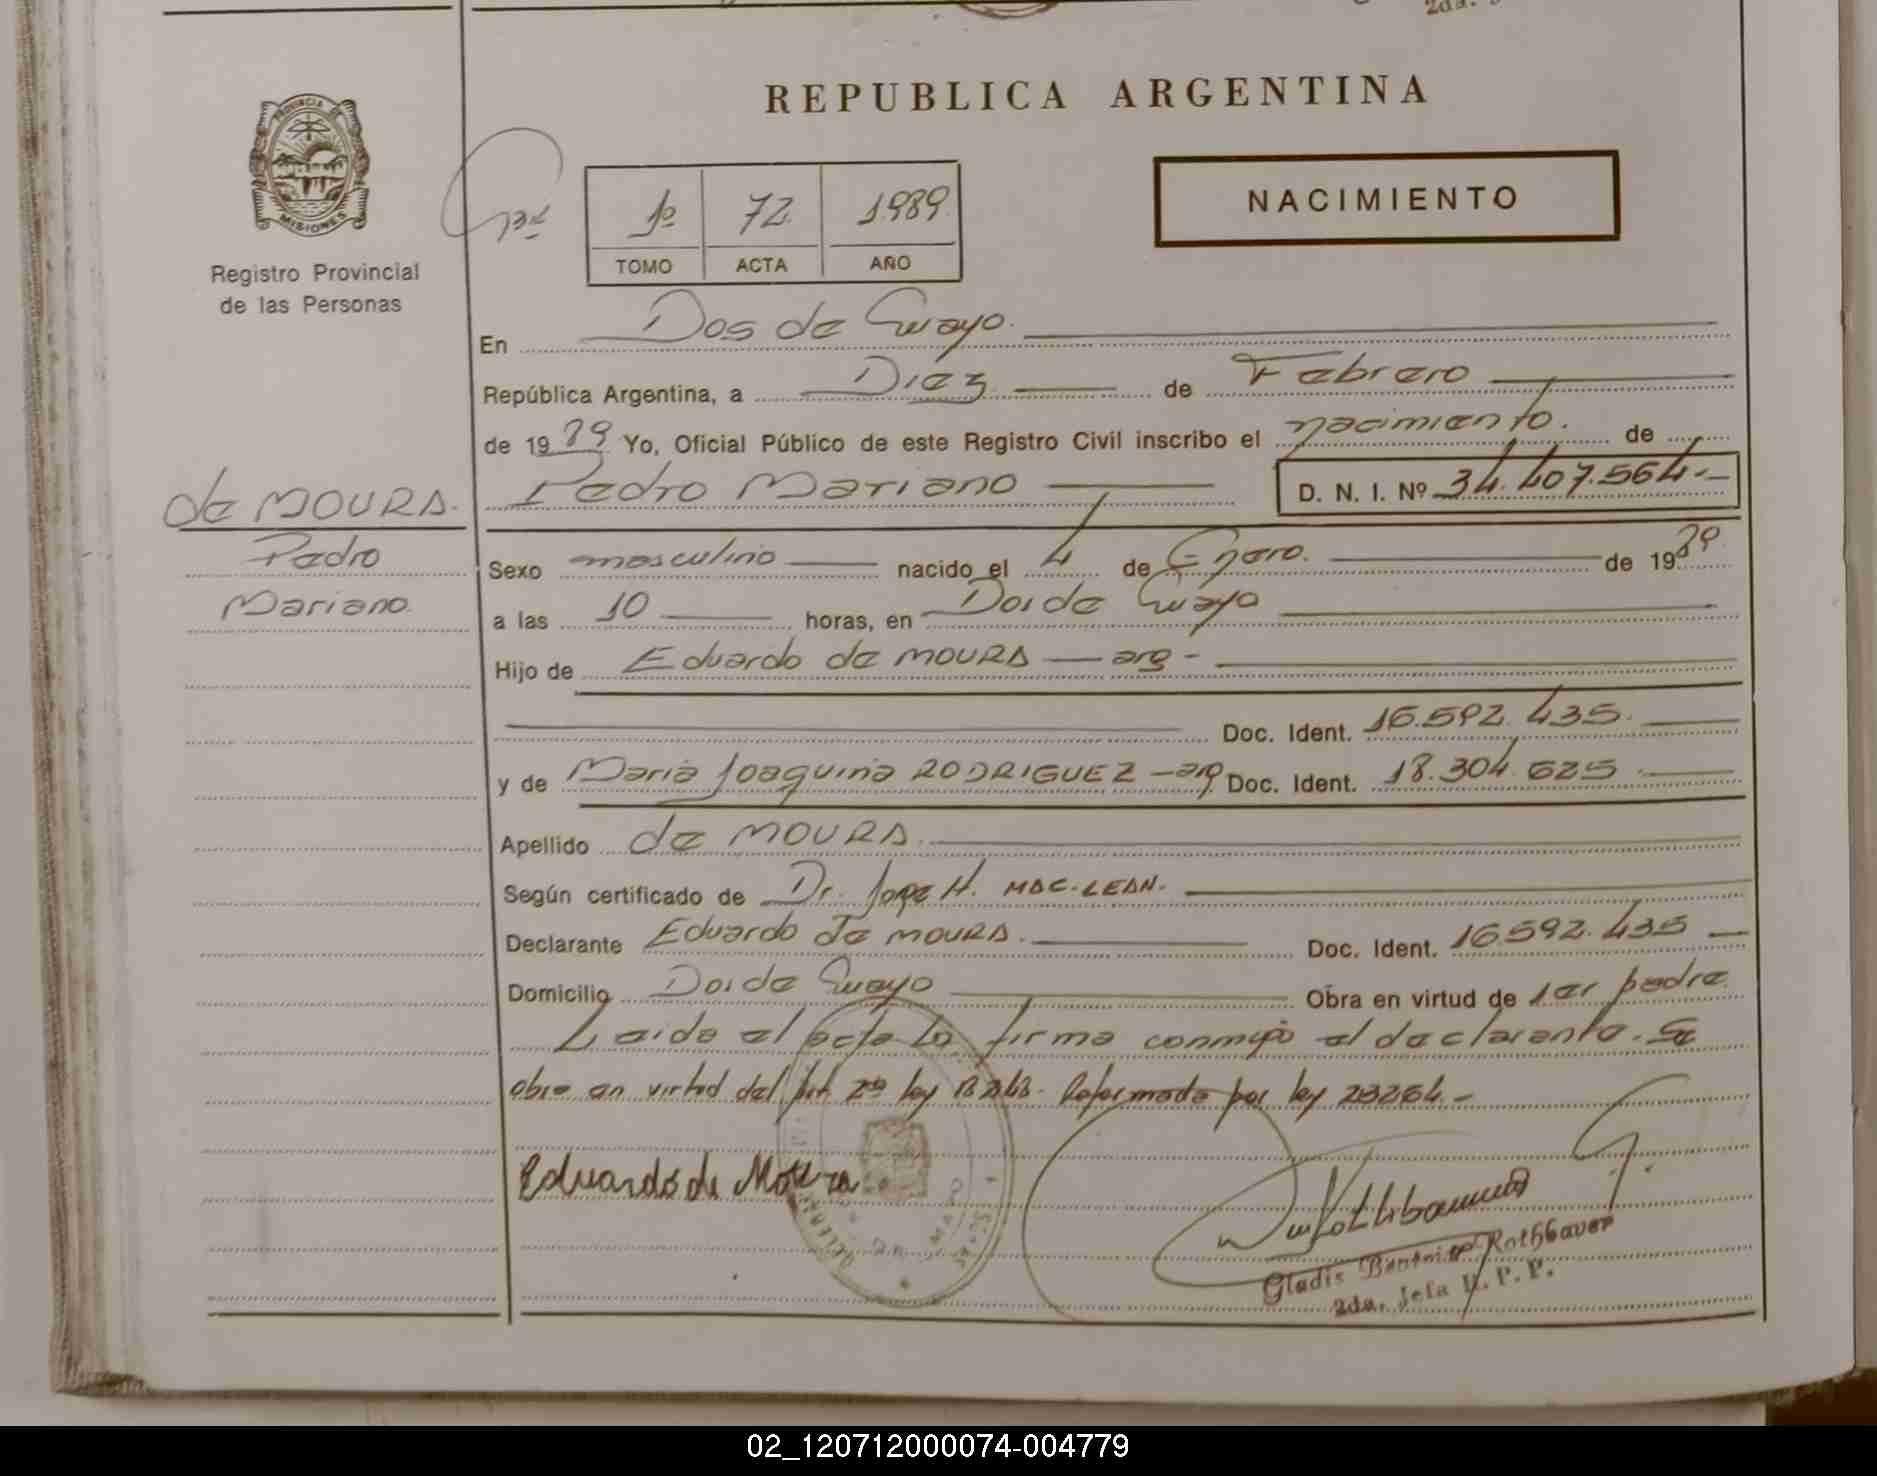 2da.
REPUBLICA ARGENTINA
PROVINCIA DE
MISIONES
Registro Provincial
de las Personas
1º 72 1989
TOMO ACTA AÑO
NACIMIENTO
En Dos de Mayo.
República Argentina, a Diez de Febrero
de 1989 Yo, Oficial Público de este Registro Civil inscribo el nacimiento. de
Pedro Mariano D. N. I. Nº 34.407.564.-
de MOURA.
Pedro
Mariano.
Sexo masculino nacido el 4 de Enero. de 1989.
a las 10 horas, en Dos de Mayo
Hijo de Eduardo de MOURA — arg -
Doc. Ident. 16.592.435.
y de Maria Joaquina RODRIGUEZ - arg. Doc. Ident. 18.304.625
Apellido de MOURA.
Según certificado de Dr. Jorge H. MAC-LEAN.
Declarante Eduardo de MOURA. Doc. Ident. 16.592.435
Domicilio Dos de Mayo Obra en virtud de ser padre
Leida el acta la firma conmigo el declarante. Se
obra en virtud del Art 2º ley Reformada por ley 23264.-
Eduardo de Moura
Gladis Rothbauer
2da. Jefa R. P. P.
02_120712000074-004779